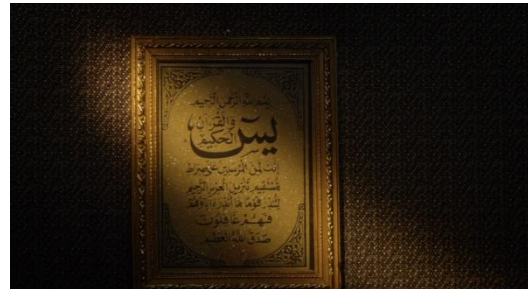 بسم الله الرحمن الرحيم
يس
والقرآن
الحكيم
إنك لمن المرسلين على صراط
مستقيم تنزيل العزيز الرحيم
لتنذر قوما ما أنذر آباؤهم
فهم غافلون
صدق الله العظيم